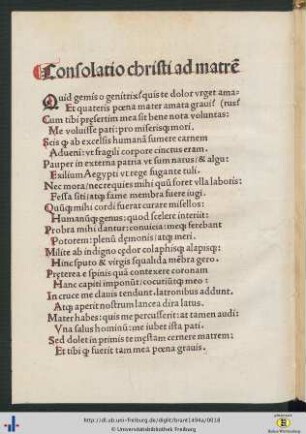 Consolatio christi ad matrē
Quid gemis o genitrix? quis te dolor vrget ama-
Et quateris pœna mater amata grauis? (rus?
Cum tibi presertim mea sit bene nota voluntas:
Me voluisse pati: pro miserisq; mori.
Scis ꝙ ab excelsis humanā sumere carnem
Adueni: vt fragili corpore cinctus eram.
Pauper in externa patria vt sum natus/ & algu:
Exilium Aegypti vt rege fugante tuli.
Nec mora/ nec requies mihi quū foret vlla laboris:
Fessa siti/ atq; fame membra fuere iugi.
Quūq; mihi cordi fuerat curare misellos:
Humanūq; genus: quod scelere interiit:
Probra mihi dantur: conuicia: meq; ferebant
Potorem: plenū dęmonis/ atq; meri.
Milite ab indigno cędor colaphisq; alapisq;:
Hinc sputo & virgis squalida mēbra gero.
Pręterea e spinis quā contexere coronam
Hanc capiti imponūt: cocutiūtq; meo:
In cruce me clauis tendunt. latronibus addunt.
Atq; aperit nostrum lancea dira latus.
Mater habes: quis me percusserit: at tamen audi:
Vna salus hominū: me iubet ista pati.
Sed dolet in primis te męstam cernere matrem:
Et tibi ꝙ fuerit tam mea pœna grauis.
http://dl.ub.uni-freiburg.de/diglit/brant1494a/0018
© Universitätsbibliothek Freiburg